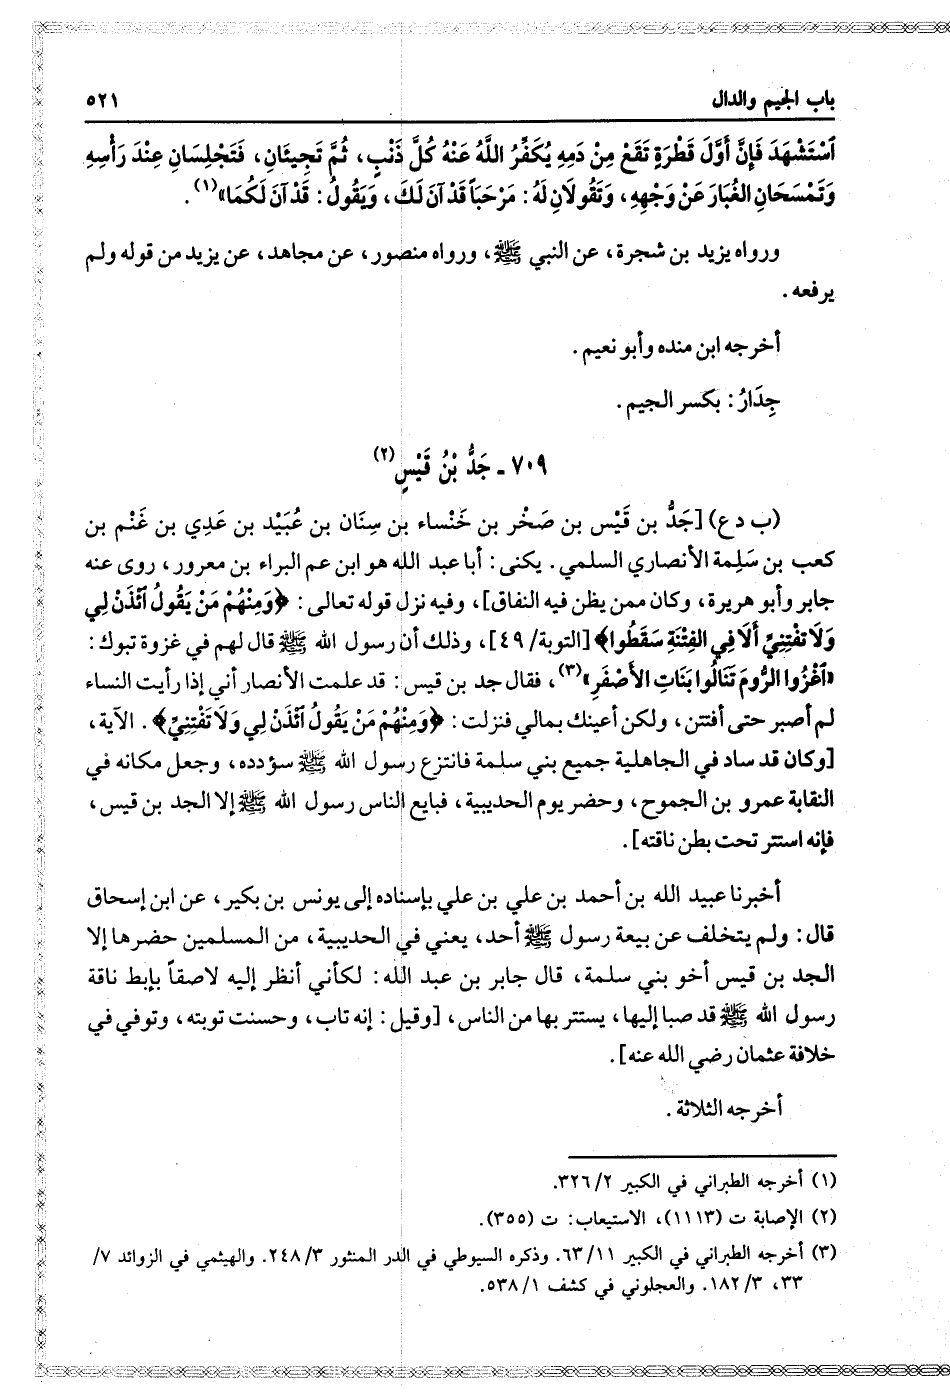 باب الجيم والدال ٥٢١
ٱسْتَشْهَدَ فَإِنَّ أَوَّلَ قَطْرَةٍ تَقَعُ مِنْ دَمِهِ يُكَفِّرُ اللَّهُ عَنْهُ كُلَّ ذَنْبٍ، ثُمَّ تَجِيئَانِ، فَتَجْلِسَانِ عِنْدَ رَأْسِهِ
وَتَمْسَحَانِ الْغُبَارَ عَنْ وَجْهِهِ، وَتَقُولاَنِ لَهُ: مَرْحَبَاً قَدْ آنَ لَكَ، وَيَقُولُ: قَدْ آنَ لَكُمَا»(١).
ورواه يزيد بن شجرة، عن النبي ﷺ، ورواه منصور، عن مجاهد، عن يزيد من قوله ولم
يرفعه.
أخرجه ابن منده وأبو نعيم.
جِدَارُ: بكسر الجيم.
٧٠٩ ـ جَدُّ بْنُ قَيْسٍ(٢)
(ب د ع) [جَدُّ بن قَيْس بن صَخْر بن خَنْساء بن سِنَان بن عُبَيْد بن عَدِي بن غَنْم بن
كعب بن سَلِمة الأنصاري السلمي. يكنى: أبا عبد الله هو ابن عم البراء بن معرور، روى عنه
جابر وأبو هريرة، وكان ممن يظن فيه النفاق]، وفيه نزل قوله تعالى: ﴿وَمِنْهُمْ مَنْ يَقُولُ ٱئْذَنْ لِي
وَلَا تَفْتِنِيِّ أَلَا فِي الفِتْنَةِ سَقَطُوا﴾ [التوبة/ ٤٩]، وذلك أن رسول الله ﷺ قال لهم في غزوة تبوك:
«ٱغْزُوا الرُّومَ تَنَالُوا بَنَاتِ الأَصْفَرِ»(٣)، فقال جد بن قيس: قد علمت الأنصار أني إذا رأيت النساء
لم أصبر حتى أفتتن، ولكن أعينك بمالي فنزلت: ﴿وَمِنْهُمْ مَنْ يَقُولُ ٱئْذَنْ لِي وَلَا تَفْتِنِيِّ﴾. الآية،
[وكان قد ساد في الجاهلية جميع بني سلمة فانتزع رسول الله ﷺ سؤدده، وجعل مكانه في
النقابة عمرو بن الجموح، وحضر يوم الحديبية، فبايع الناس رسول الله ﷺ إلا الجد بن قيس،
فإنه استتر تحت بطن ناقته].
أخبرنا عبيد الله بن أحمد بن علي بن علي بإسناده إلى يونس بن بكير، عن ابن إسحاق
قال: ولم يتخلف عن بيعة رسول ﷺ أحد، يعني في الحديبية، من المسلمين حضرها إلا
الجد بن قيس أخو بني سلمة، قال جابر بن عبد الله: لكأني أنظر إليه لاصقاً بإبط ناقة
رسول الله ﷺ قد صبا إليها، يستتر بها من الناس، [وقيل: إنه تاب، وحسنت توبته، وتوفي في
خلافة عثمان رضي الله عنه].
أخرجه الثلاثة.
(١) أخرجه الطبراني في الكبير ٢/ ٣٢٦.
(٢) الإصابة ت (١١١٣)، الاستيعاب: ت (٣٥٥).
(٣) أخرجه الطبراني في الكبير ١١/ ٦٣. وذكره السيوطي في الدر المنثور ٣/ ٢٤٨. والهيثمي في الزوائد ٧/
٣٣، ٣/ ١٨٢. والعجلوني في كشف ١/ ٥٣٨.